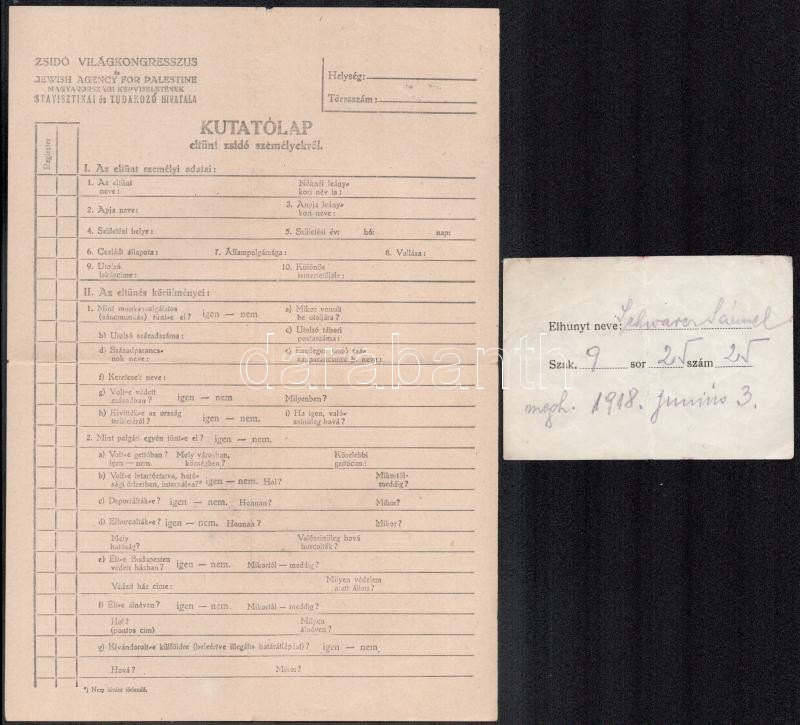 ZSIDÓ VILÁGKONGRESSZUS
és
JEWISH AGENCY FOR PALESTINE
MAGYARORSZÁGI KÉPVISELETÉNEK
STATISZTIKAI és TUDAKOZÓ HIVATALA
Helység:
Törzsszám:
KUTATÓLAP
eltünt zsidó személyekről.
Regiszter
I. Az eltünt személyi adatai:
1. Az eltünt neve: Nőknél leány-kori név is:
2. Apja neve: 3. Anyja leány-kori neve:
4. Születési helye: 5. Születési év: hó: nap:
6. Családi állapota: 7. Állampolgársága: 8. Vallása:
9. Utolsó lakáscíme: 10. Különös ismertetőjele:
II. Az eltünés körülményei:
1. Mint munkaszolgálatos (sáncmunkás) tünt-e el? igen — nem a) Mikor vonult be utoljára?
b) Utolsó századszáma: c) Utolsó tábori postaszáma:
d) Századparancs-nok neve: e)
f) Keretesek neve:
g) Volt-e védett században? igen — nem Milyenben?
h) Kivitték-e az ország területéről? igen — nem i) Ha igen, való-szinüleg hová?
2. Mint polgári egyén tünt-e el? igen — nem.
a) Volt-e gettóban? igen — nem. Mely városban, községben? Közelebbi gettócím:
b) Volt-e letartóztatva, ható-sági őrizetben, internálva?* igen — nem. Hol? Mikortól-meddig?
c) Deportálták-e? igen — nem. Honnan? Mikor?
d) Elhurcolták-e? igen — nem. Honnan? Mikor?
Mely hatóság? Valószinüleg hová hurcolták?
e) Élt-e Budapesten védett házban? igen — nem. Mikortól — meddig?
Védett ház címe: Milyen védelem alatt állott?
f) Élt-e álnéven? igen — nem. Mikortól — meddig?
Hol? (pontos cím) Milyen álnéven?
g) Kivándorolt-e külföldre (beleértve illegális határátlépést)? igen — nem.
Hová? Mikor?
*) Nem kívánt törlendő.
darabanth
Elhunyt neve: Schwarcz Sámuel
Szak. 9 sor 25 szám 25
megh. 1918. Junius 3.